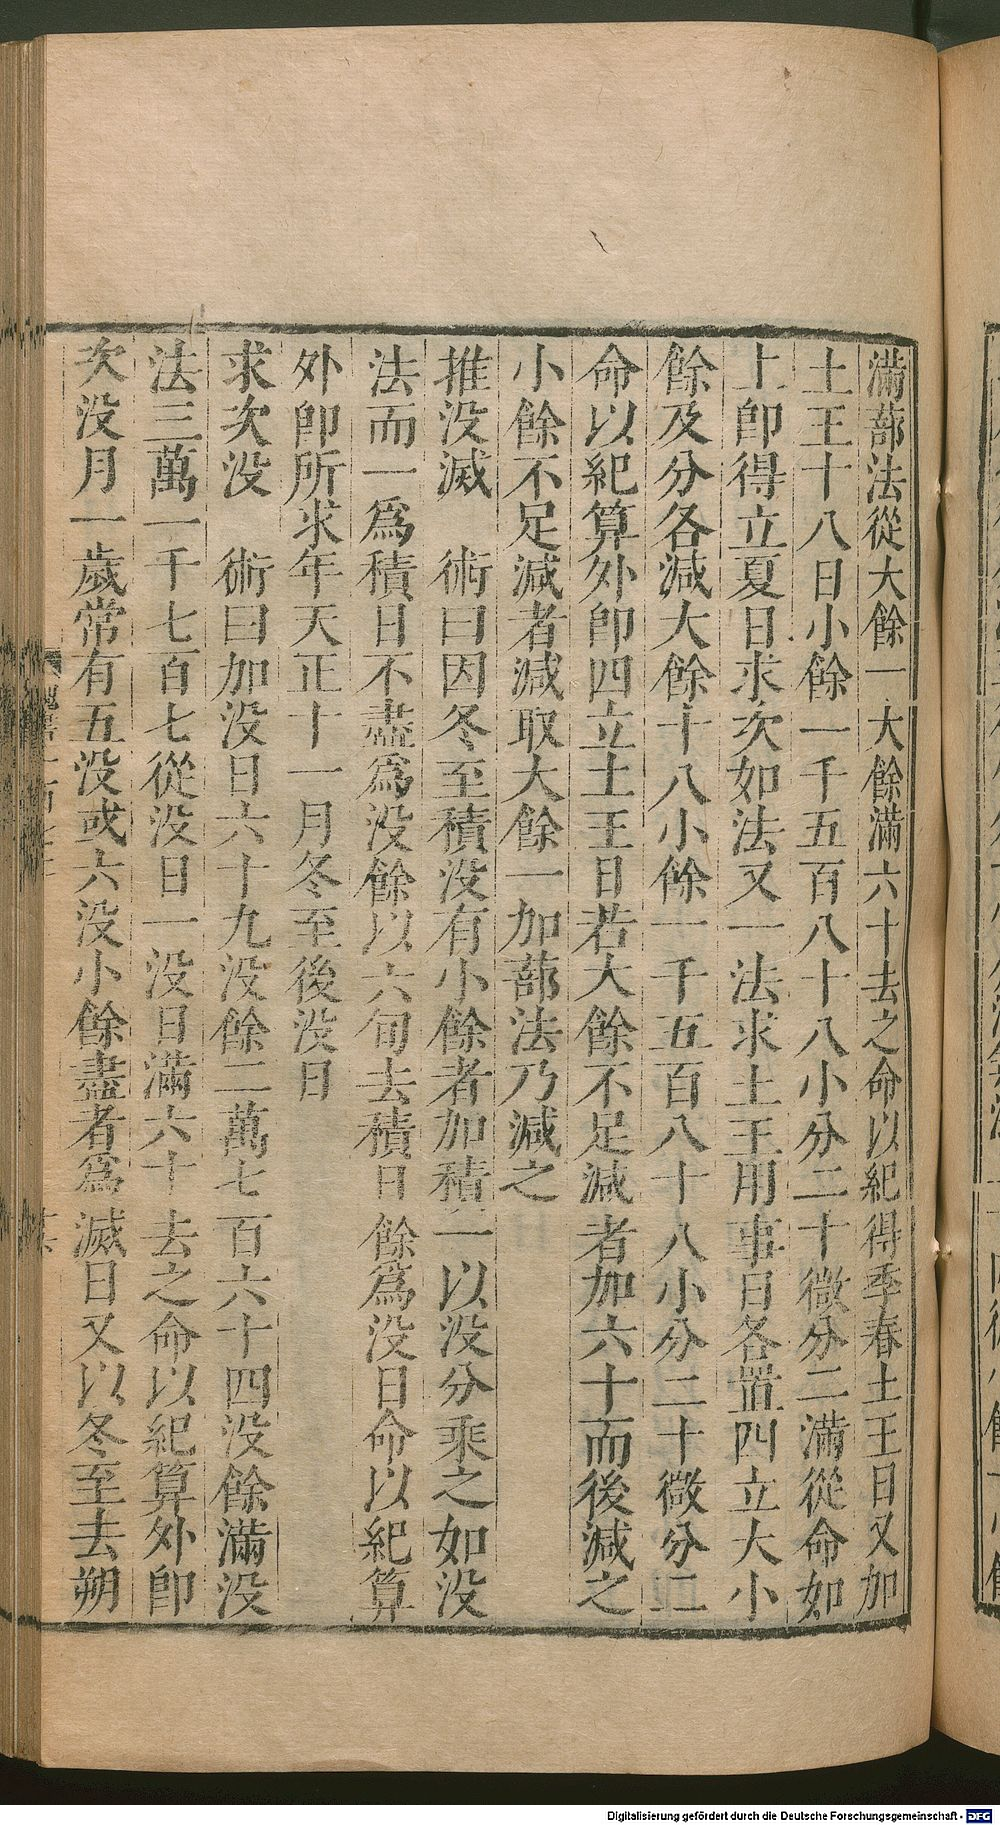 滿蔀法從大餘一大餘滿六十去之命以紀得季春土王日又加
土王十八日小餘一千五百八十八小分二十微分二滿從命如
上即得立夏日求次如法又一法求土王用事日各置四立大小
餘及分各減大餘十八小餘一千五百八十八小分二十微分二
命以紀算外即四立土王日若大餘不足減者加六十而後減之
小餘不足減者減取大餘一加蔀法乃減之
推没滅 術曰因冬至積没有小餘者加積一以没分乘之如没
法而一爲積日不盡爲没餘以六旬去積日餘爲没日命以紀算
外即所求年天正十一月冬至後没日
求次没 術曰加没日六十九没餘二萬七百六十四没餘滿没
法三萬一千七百七從没日一没日滿六十去之命以紀算外即
次没月一歲常有五没或六没小餘盡者爲滅日又以冬至去朔
Digitalisierung gefördert durch die Deutsche Forschungsgemeinschaft - DFG